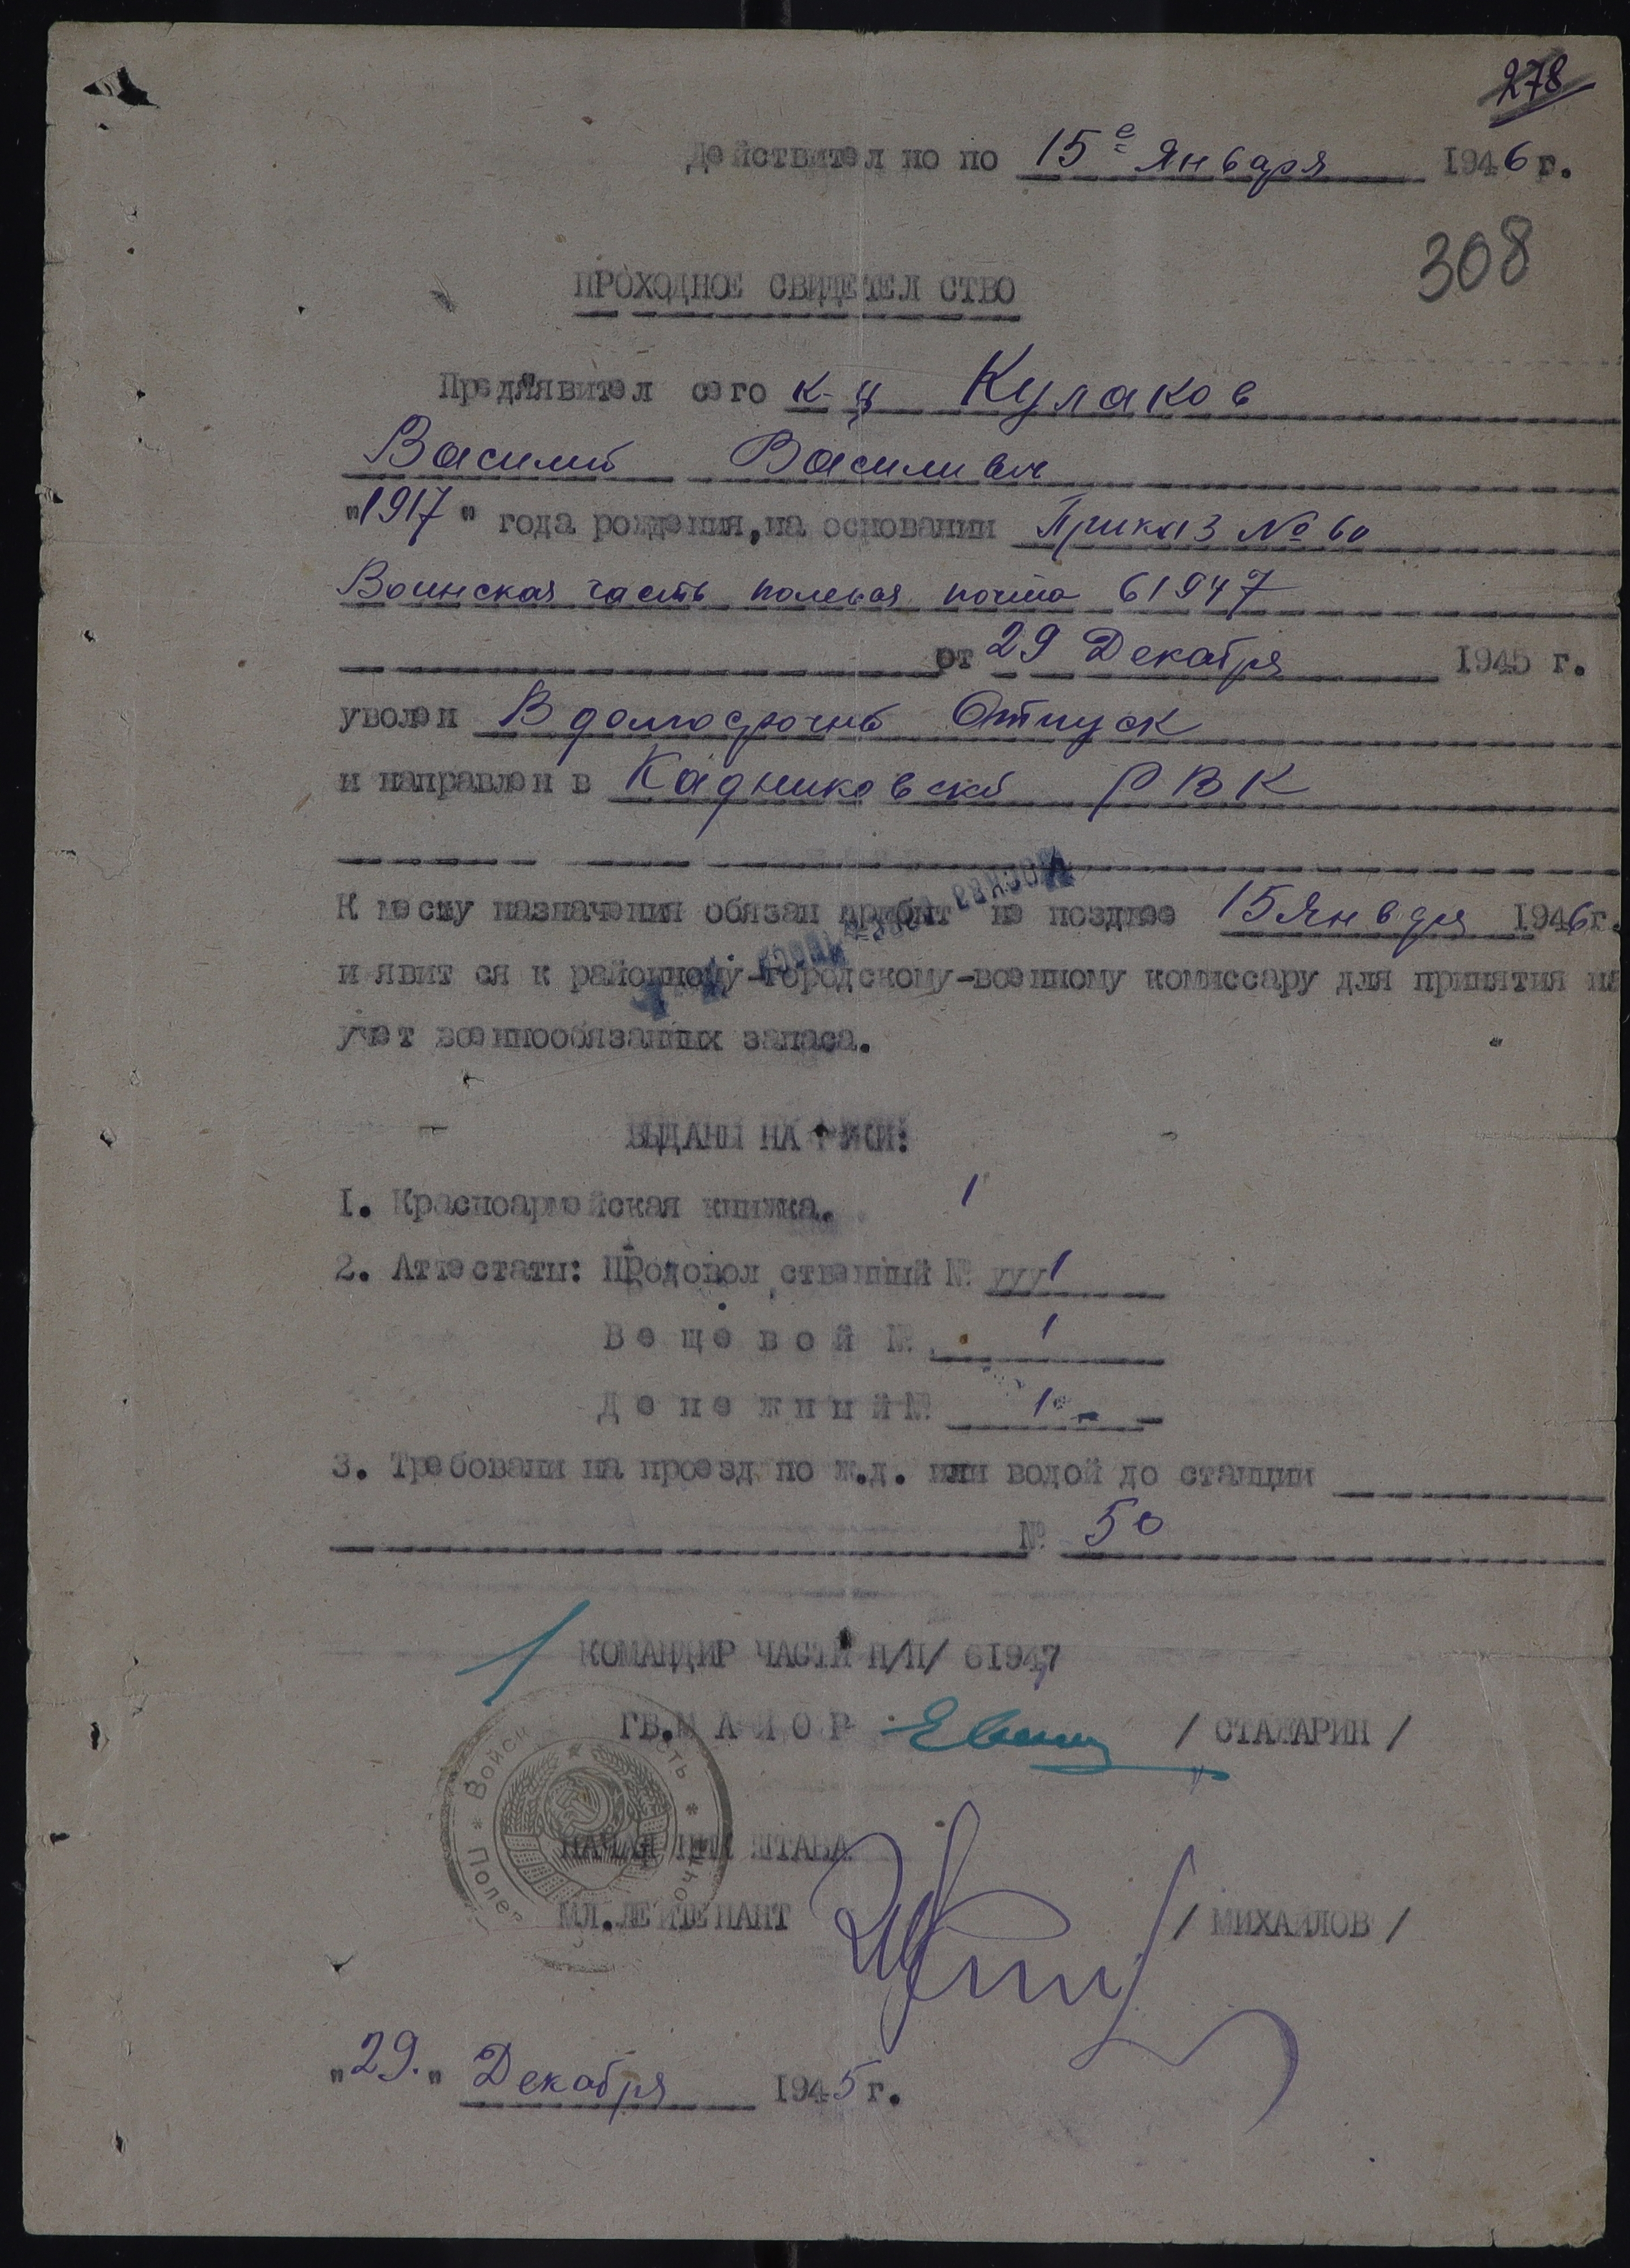 278
Действител но по 15е Января 1946 г.
308
ПРОХОДНОЕ СВИДЕТЕЛ СТВО
Пред"явител сего к-ц Кулаков
Василий Василивич
"1917" года рождения, на основании Приказ № 60
Воинская часть полевая почта 61947
от 29 Декабря 1945 г.
уволен В долгосрочнй Отпуск
и направлен в Кадниковскй РВК
К месту назначения обязан прибыт не позднее 15 Января 1946г.
МОСКВА
и явит ся к районному-городскому-военному комиссару для принятия на
учет военнообязанных запаса.
ВЫДАНЫ НА РУКИ:
1. Красноармейская книжка. 1
2. Аттестаты: Продовол ственный № ууу1
В е щ е в о й № 1
Д е н е ж н ы й № 1
3. Требовани на проезд по ж.д. или водой до станции
№ 50
КОМАНДИР ЧАСТИ П/П/ 61947
ГВ.М А Й О Р / СТАЛАРИН /
Войск сть
НАЧАЛ НИК ШТАБА
Полев очт
МЛ.ЛЕЙТЕНАНТ / МИХАЙЛОВ /
"29." Декабря 1945 г.